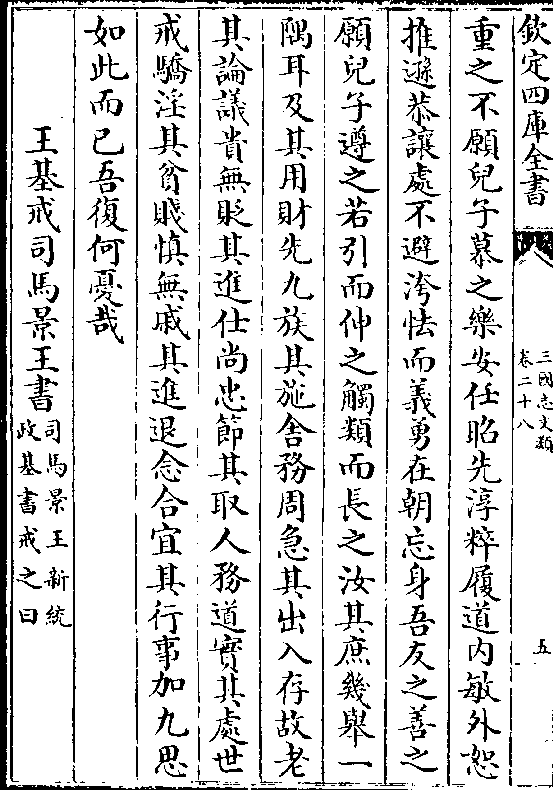 欽定四庫全書
三國志文類
卷二十八
五
重之不願兒子慕之樂安任昭先淳粹履道内敏外恕
推遜恭讓處不避洿怯而義勇在朝忘身吾友之善之
願兒子遵之若引而伸之觸類而長之汝其庶幾舉一
隅耳及其用財先九族其施舍務周急其出入存故老
其論議貴無貶其進仕尚忠節其取人務道實其處世
戒驕淫其貧賤慎無戚其進退念合宜其行事加九思
如此而已吾復何憂哉
王基戒司馬景王書
司馬景王新統
政基書戒之曰